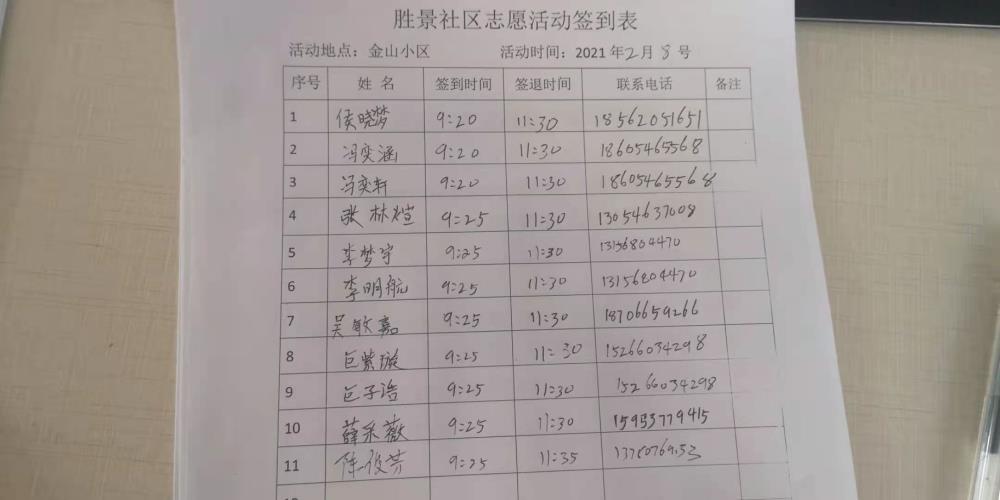 胜景社区志愿活动签到表
活动地点：金山小区 活动时间：2021年2月8号
序号 姓名 签到时间 签退时间 联系电话 备注
1 侯晓梦 9:20 11:30 18562051651
2 冯奕涵 9:20 11:30 18605465568
3 冯奕轩 9:20 11:30 18605465568
4 张林煊 9:25 11:30 13054637008
5 李梦宇 9:25 11:30 13156804470
6 李明航 9:25 11:30 13156804470
7 吴敏嘉 9:25 11:30 18706659266
8 巨紫璇 9:25 11:30 15266034298
9 巨子浩 9:25 11:30 15266034298
10 薛采薇 9:25 11:30 15953779415
11 陈俊芬 9:25 11:35